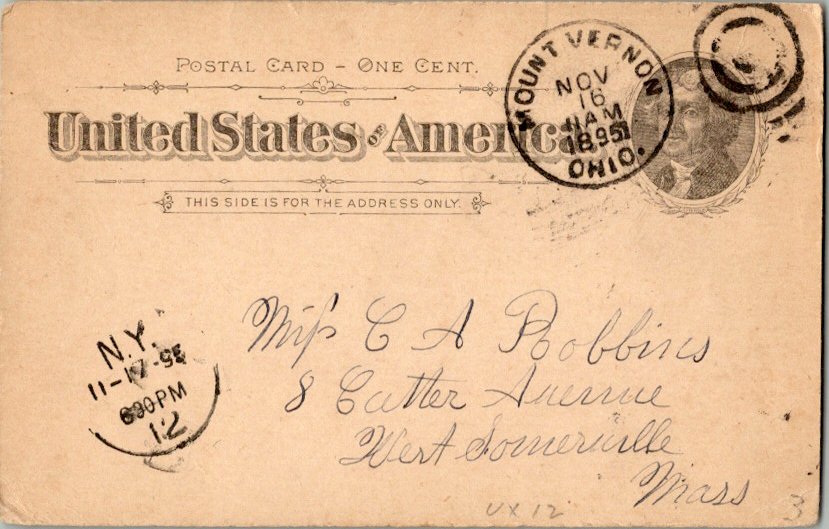 POSTAL CARD – ONE CENT.
United States of America
THIS SIDE IS FOR THE ADDRESS ONLY.
MOUNT VERNON
NOV
16
11 AM
1895
OHIO.
N.Y.
11-17-95
630PM
12
Miſs C A Robbins
8 Cutter Avenue
West Somerville
Mass
UX 12
3